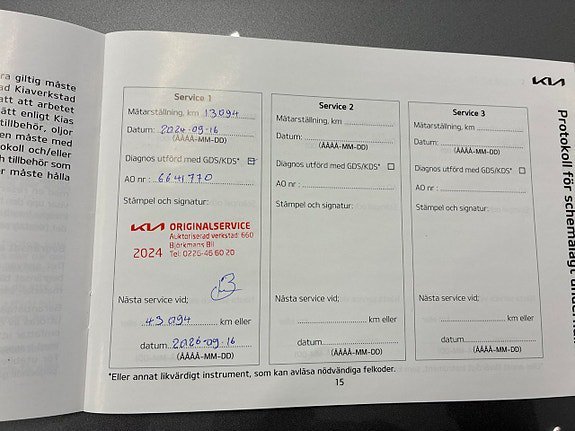 ra giltig måste
ad Kiaverkstad
att att arbetet
ätt enligt Kias
tillbehör, oljor
en måste med
okoll och/eller
h tillbehör som
er måste hålla
KIA
Protokoll för schemalagt underhåll
Service 1
Mätarställning, km 13094
Datum: 2024-09-16
(ÅÅÅÅ-MM-DD)
Diagnos utförd med GDS/KDS*
AO nr : 6641770
Stämpel och signatur:
KIA ORIGINALSERVICE
Auktoriserad verkstad: 660
Björkmans Bil
2024 Tel: 0225-46 60 20
Nästa service vid;
43094 km eller
datum 2026-09-16
(ÅÅÅÅ-MM-DD)
Service 2
Mätarställning, km
Datum:
(ÅÅÅÅ-MM-DD)
Diagnos utförd med GDS/KDS*
AO nr :
Stämpel och signatur:
Nästa service vid;
km eller
datum
(ÅÅÅÅ-MM-DD)
Service 3
Mätarställning, km
Datum:
(ÅÅÅÅ-MM-DD)
Diagnos utförd med GDS/KDS*
AO nr :
Stämpel och signatur:
Nästa service vid;
km eller
datum
(ÅÅÅÅ-MM-DD)
*Eller annat likvärdigt instrument, som kan avläsa nödvändiga felkoder.
15